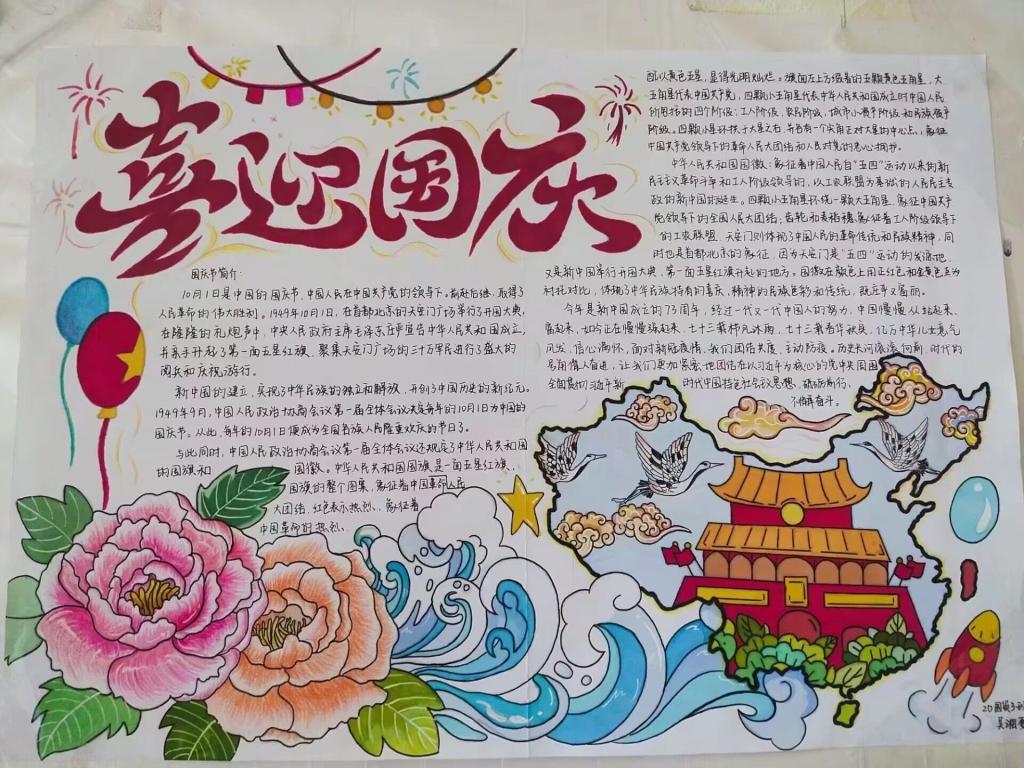 喜迎国庆
国庆节简介:
10月1日是中国的国庆节、中国人民在中国共产党的领导下。前赴后继、取得了
人民革命的伟大胜利。1949年10月1日,在首都北京的天安门广场举行了开国大典,
在隆隆的礼炮声中,中央人民政府主席毛泽东庄严宣告中华人民共和国成立,
并亲手升起了第一面五星红旗、聚集天安门广场的三十万军民进行了盛大的
阅兵和庆祝游行。
新中国的建立,实现了中华民族的独立和解放,开创了中国历史的新纪元。
1949年9月,中国人民政治协商会议第一届全体会议决定每年的10月1日为中国的
国庆节。从此,每年的10月1日便成为全国各族人民隆重欢庆的节日了。
与此同时,中国人民政治协商会议第一届全体会议还规定了中华人民共和国
的国旗和 国徽。中华人民共和国国旗是一面五星红旗、
国旗的整个图案,象征着中国革命人民
大团结、红色表示热烈、象征着
中国革命的热烈、
配以黄色五星,显得光明灿烂。旗面左上方缀着的五颗黄色五角星,大
五角星代表中国共产党,四颗小五角星代表中华人民共和国成立时中国人民
所包括的四个阶级:工人阶级、农民阶级、城市小资产阶级和民族资产
阶级。四颗小星环拱于大星之右,并各有一个尖角正对大星的中心点,象征
中国共产党领导下的革命人民大团结和人民对党的衷心拥护。
中华人民共和国国徽:象征着中国人民自“五四”运动以来的新
民主主义革命斗争和工人阶级领导的,以工农联盟为基础的人民民主专
政的新中国的诞生。四颗小五角星环绕一颗大五角星、象征中国共产
党领导下的全国人民大团结;齿轮和麦稻穗象征着工人阶级领导下
的工农联盟、天安门则体现了中国人民的革命传统和民族精神,同
时也是首都北京的象征、因为天安门是“五四”运动的发源地、
又是新中国举行开国大典,第一面五星红旗升起的地方。国徽在颜色上用正红色和金黄色互为
衬托对比,体现了中华民族特有的喜庆,精神的民族色彩和传统,既庄严又富丽。
今年是新中国成立的73周年,经过一代又一代中国人的努力,中国慢慢从站起来、
富起来、如今正在慢慢强起来,七十三载栉风沐雨,七十三载春华秋实,亿万中华儿女意气
风发、信心满怀,面对新冠疫情,我们团结共度、主动防疫。历史长河滚滚向前,时代的
号角催人奋进,让我们更加紧密地团结在以习近平为核心的党中央周围
全面贯彻习近平新 时代中国特色社会主义思想、砥砺前行、
不懈奋斗。